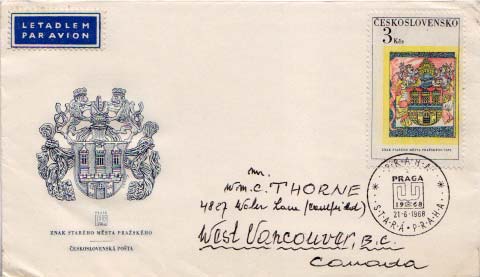 LETADLEM
PAR AVION
ČESKOSLOVENSKO
3
Kčs
ZNAK STARÉHO MĚSTA PRAŽSKÉHO 1475
PRAHA
PRAGA
1968
21-6-1968
STARÁ PRAHA
PRAGA
1968
ZNAK STARÉHO MĚSTA PRAŽSKÉHO
ČESKOSLOVENSKÁ POŠTA
Mr.
Wm. C. THORNE
4827 Water Lane (Caulfeild)
West Vancouver, B.C.
Canada